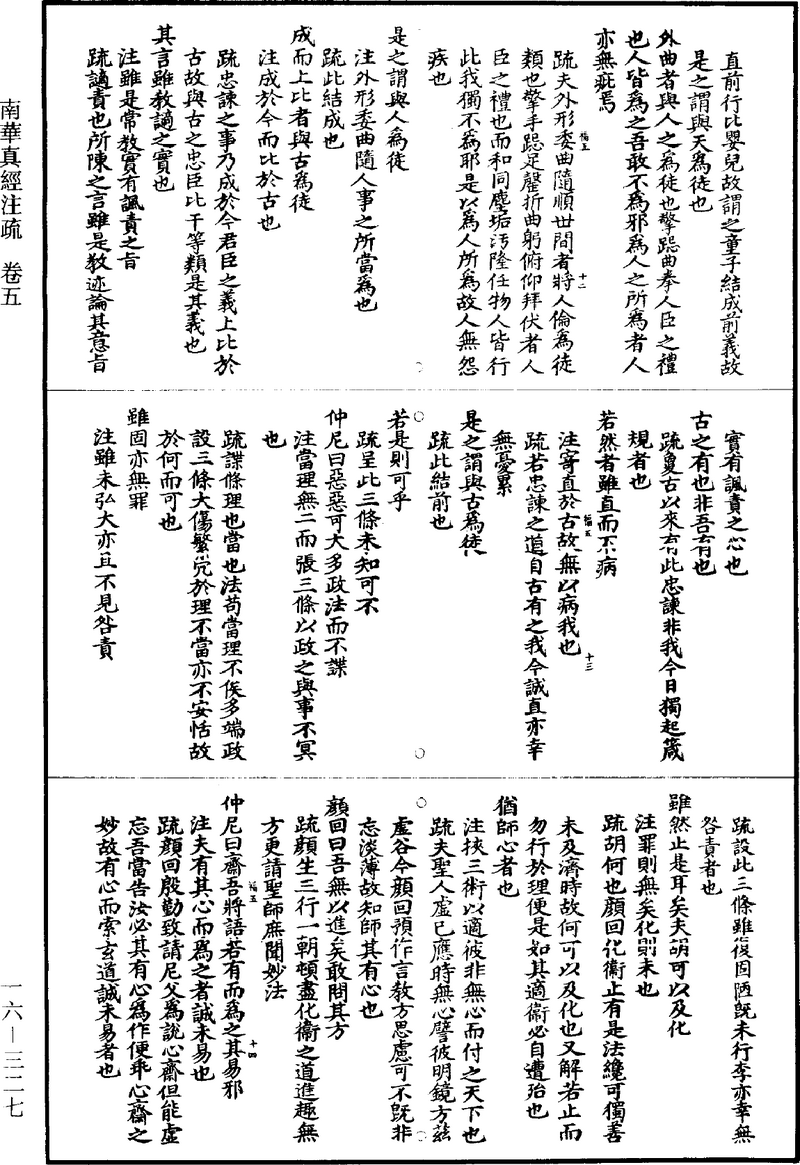 南華真經注疏　卷五
直前行比嬰兒故謂之童子結成前義故
是之謂與天爲徒也
外曲者與人之爲徒也擎跽曲拳人臣之禮
也人皆爲之吾敢不爲邪爲人之所爲者人
亦無疵焉
疏夫外形委曲隨順世間者將人倫爲徒
類也擎手跽足磬折曲躬俯仰拜伏者人
臣之禮也而和同塵垢汙隆任物人皆行
此我獨不爲耶是以爲人所爲故人無怨
疾也
是之謂與人爲徒
注外形委曲隨人事之所當爲也
疏此結成也
成而上比者與古爲徒
注成於今而比於古也
疏忠諫之事乃成於今君臣之義上比於
古故與古之忠臣比干等類是其義也
其言雖教讁之實也
注雖是常教實有諷責之旨
疏讁責也所陳之言雖是教迹論其意旨
福五
十二
實有諷責之心也
古之有也非吾有也
疏夐古以來有此忠諫非我今日獨起箴
規者也
若然者雖直而不病
注寄直於古故無以病我也
疏若忠諫之道自古有之我今誠直亦幸
無憂累
是之謂與古爲徒
疏此結前也
若是則可乎
疏呈此三條未知可不
仲尼曰惡惡可大多政法而不諜
注當理無二而張三條以政之與事不冥
也
疏諜條理也當也法苟當理不俟多端政
設三條大傷繁冗於理不當亦不安恬故
於何而可也
雖固亦無罪
注雖未弘大亦且不見咎責
福五
十三
疏設此三條雖復固陋旣未行李亦幸無
咎責者也
雖然止是耳矣夫胡可以及化
注罪則無矣化則未也
疏胡何也顏回化衞止有是法纔可獨善
未及濟時故何可以及化也又解若止而
勿行於理便是如其適衞必自遭殆也
猶師心者也
注挾三術以適彼非無心而付之天下也
疏夫聖人虛己應時無心譬彼明鏡方茲
虛谷今顏回預作言教方思慮可不旣非
忘淡薄故知師其有心也
顏回曰吾無以進矣敢問其方
疏顏生三行一朝頓盡化衞之道進趣無
方更請聖師庶聞妙法
仲尼曰齋吾將語若有而爲之其易邪
注夫有其心而爲之者誠未易也
疏顏回殷勤致請尼父爲說心齋但能虛
忘吾當告汝必其有心爲作便乖心齋之
妙故有心而索玄道誠未易者也
福五
十四
一六—三二七